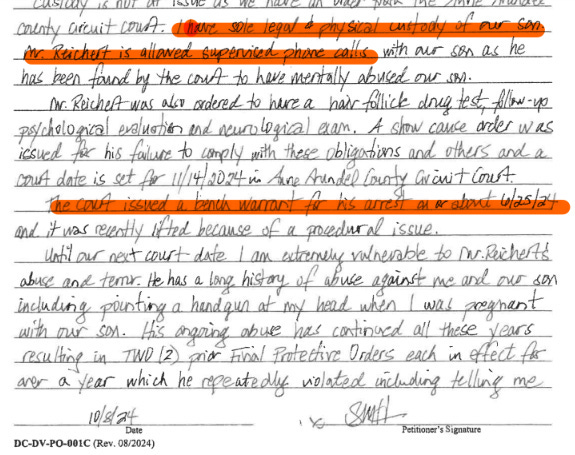 Custody is not at issue as we have an order from the Anne Arundel
County Circuit Court. I have sole legal & physical custody of our son.
Mr. Reichert is allowed supervised phone calls with our son as he
has been found by the court to have mentally abused our son.
Mr. Reichert was also ordered to have a hair follick drug test, follow-up
psychological evaluation and neurological exam. A show cause order was
issued for his failure to comply with these obligations and others and a
court date is set for 11/14/2024 in Anne Arundel County Circuit Court.
The court issued a bench warrant for his arrest on or about 6/25/24
and it was recently lifted because of a procedural issue.
Until our next court date I am extremely vulnerable to Mr. Reichert's
abuse and terror. He has a long history of abuse against me and our son
including pointing a handgun at my head when I was pregnant
with our son. His ongoing abuse has continued all these years
resulting in TWO (2) prior Final Protective Orders each in effect for
over a year which he repeatedly violated including telling me
10/8/24
Date
Petitioner's Signature
DC-DV-PO-001C (Rev. 08/2024)